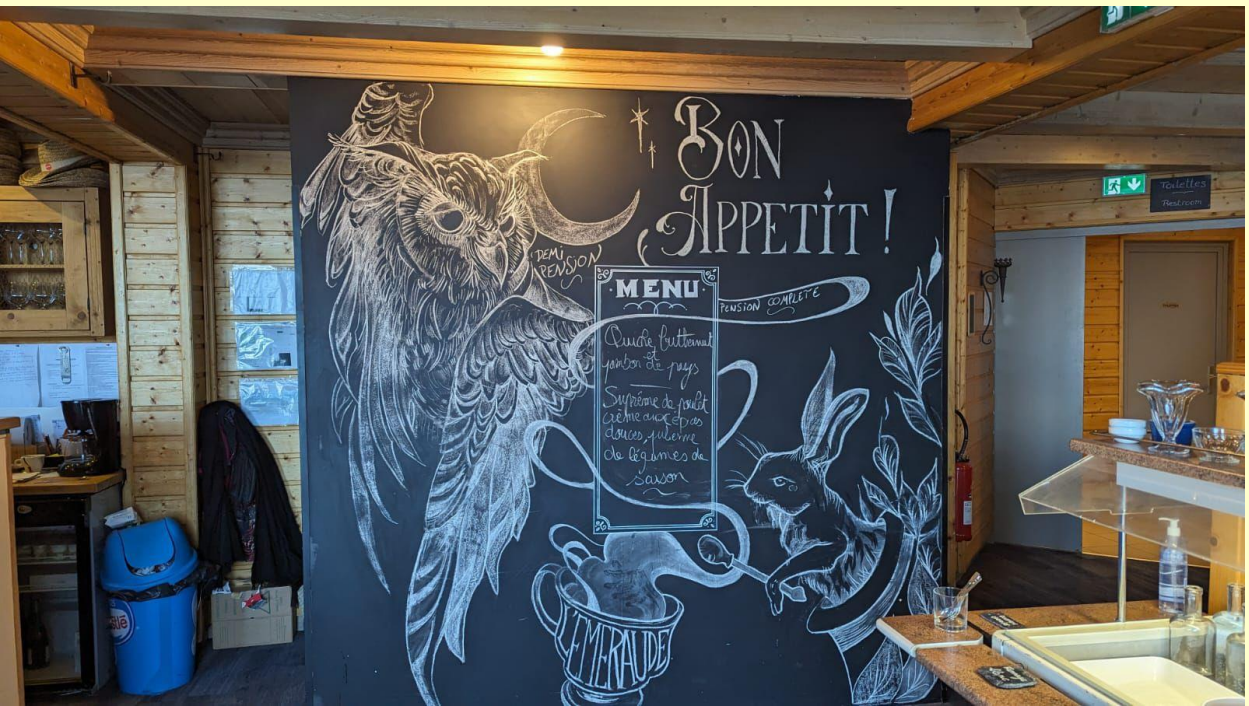 BON
APPETIT !
DEMI
PENSION
MENU
PENSION COMPLETE
Quiche butternut
et
jambon de pays
Suprême de poulet
crème aux épices
douces, julienne
de légumes de
saison
L'EMERAUDE
Toilettes
Restroom